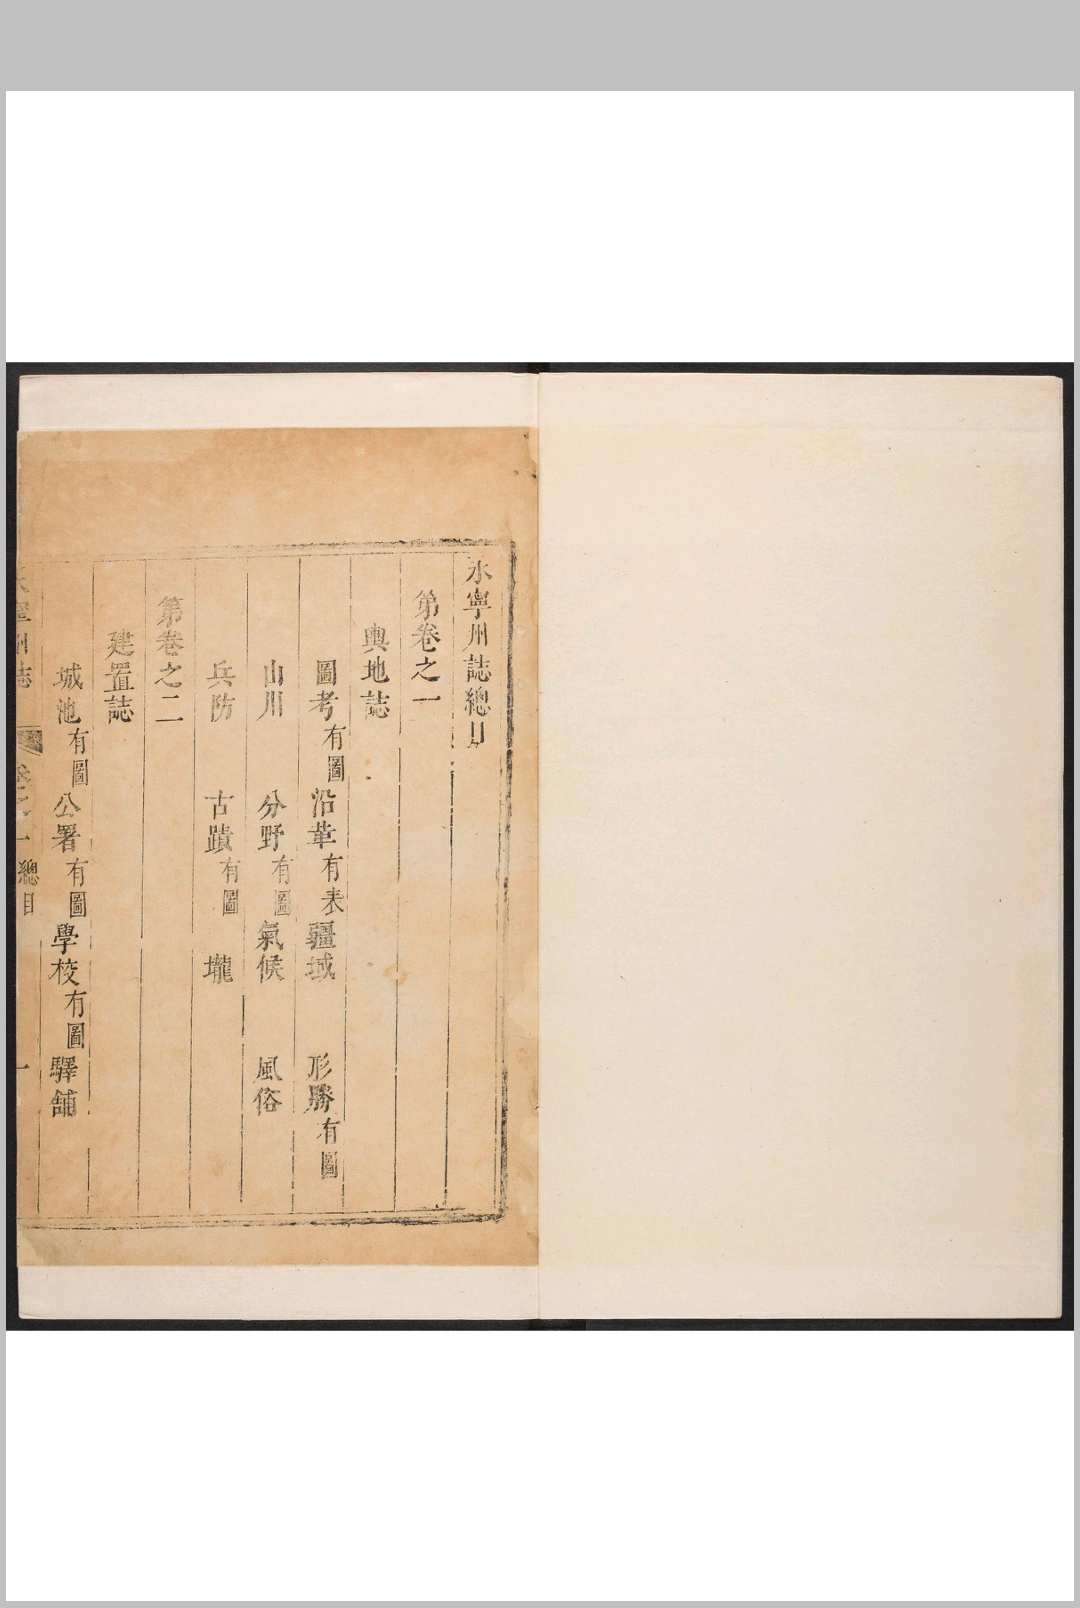 永寧州誌總目
第卷之一
輿地誌
圖考有圖 沿革有表 疆域 形勝有圖
山川 分野有圖 氣候 風俗
兵防 古蹟有圖 壠
第卷之二
建置誌
城池有圖 公署有圖 學校有圖 驛舖
永寧州誌 卷之一 總目 一